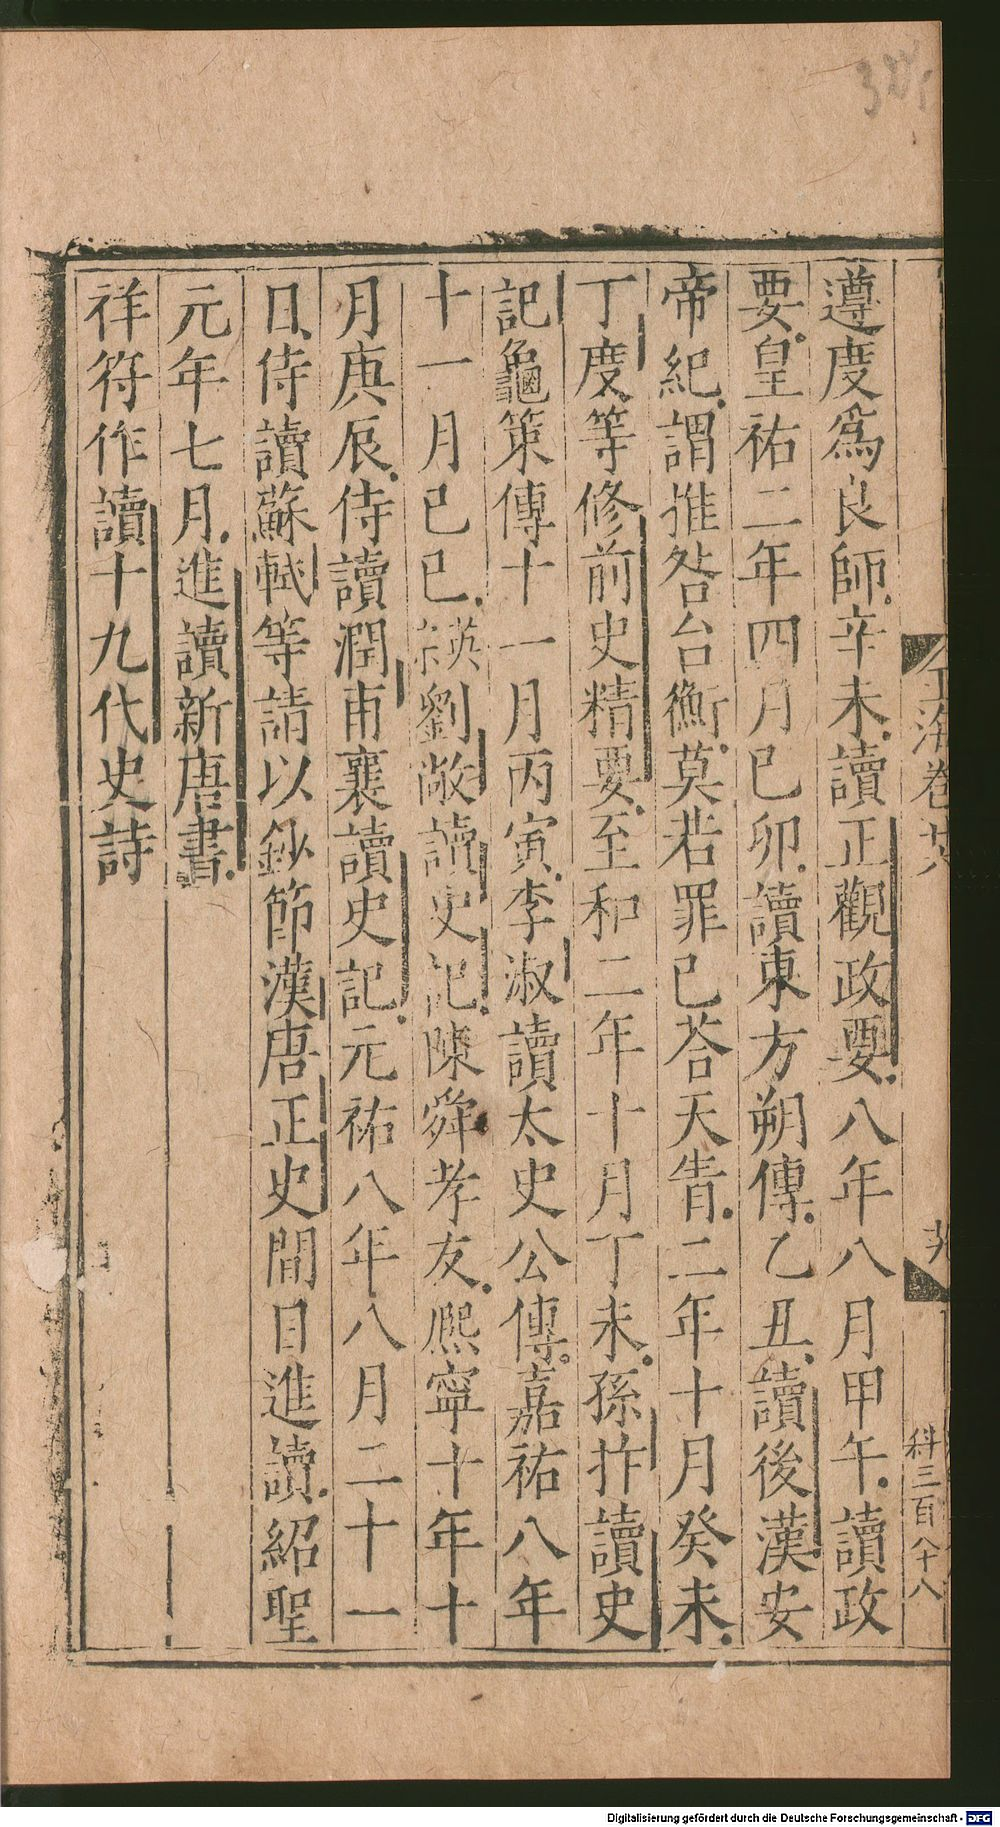 遵度爲良師辛未讀正觀政要八年八月甲午讀政
要皇祐二年四月己卯讀東方朔傳乙丑讀後漢安
帝紀謂推咎台衡莫若罪己荅天眚二年十月癸未
丁度等修前史精要至和二年十月丁未孫抃讀史
記龜策傳十一月丙寅李淑讀太史公傳嘉祐八年
十一月已巳英宗劉敞讀史記陳舜孝友熈寧十年十
月庚辰侍讀潤甫襄讀史記元祐八年八月二十一
日侍讀蘇軾等請以鈔節漢唐正史間日進讀紹聖
元年七月進讀新唐書
祥符作讀十九代史詩
科三百八十八
Digitalisierung gefördert durch die Deutsche Forschungsgemeinschaft - DFG